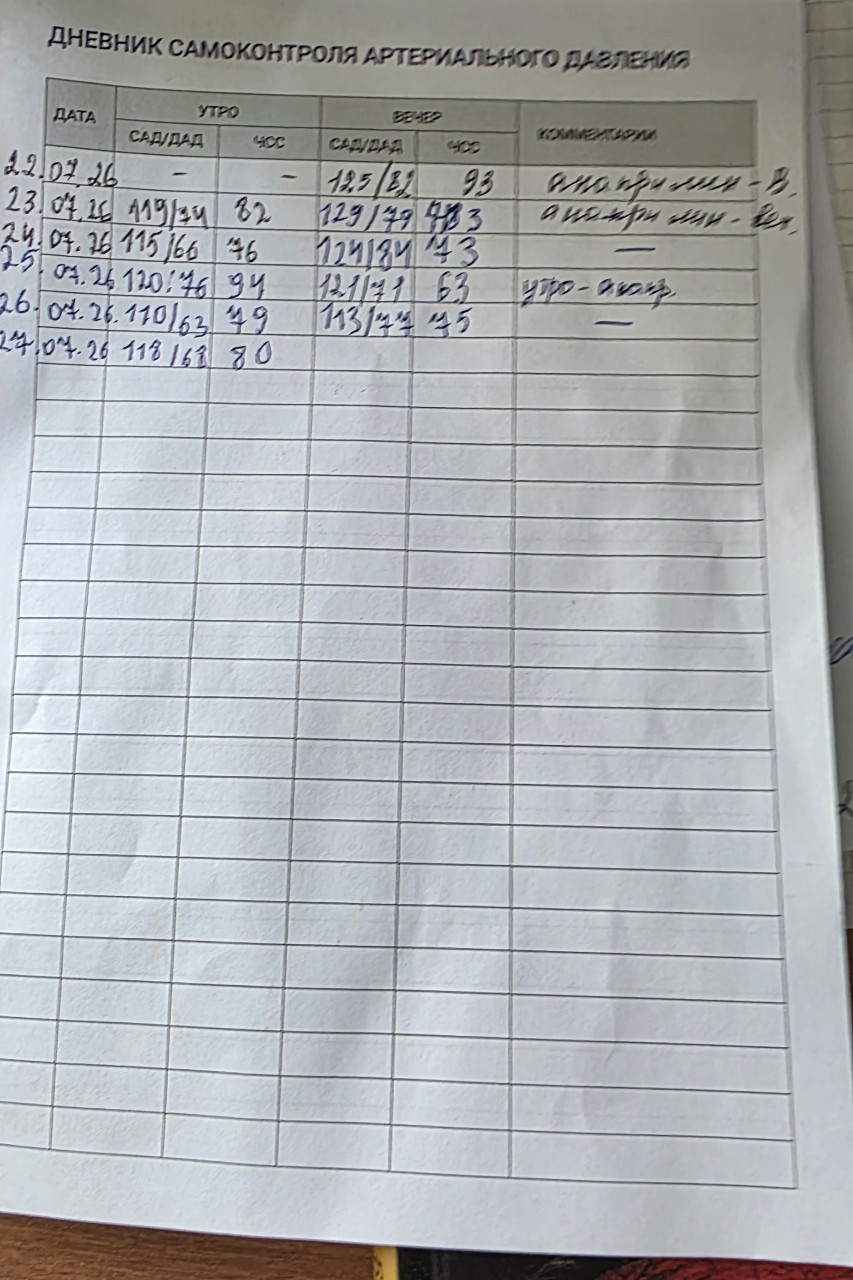 ДНЕВНИК САМОКОНТРОЛЯ АРТЕРИАЛЬНОГО ДАВЛЕНИЯ
ДАТА УТРО ВЕЧЕР КОММЕНТАРИИ
САД/ДАД ЧСС САД/ДАД ЧСС
22.07.26 - - 125/82 93 анаприлин - В.
23.07.26 119/74 82 129/79 83 анаприлин - Веч.
24.07.26 115/66 76 124/84 73 —
25.07.26 120/76 94 121/71 63 утро - анапр.
26.07.26. 110/63 79 113/77 75 —
27.07.26 118/68 80